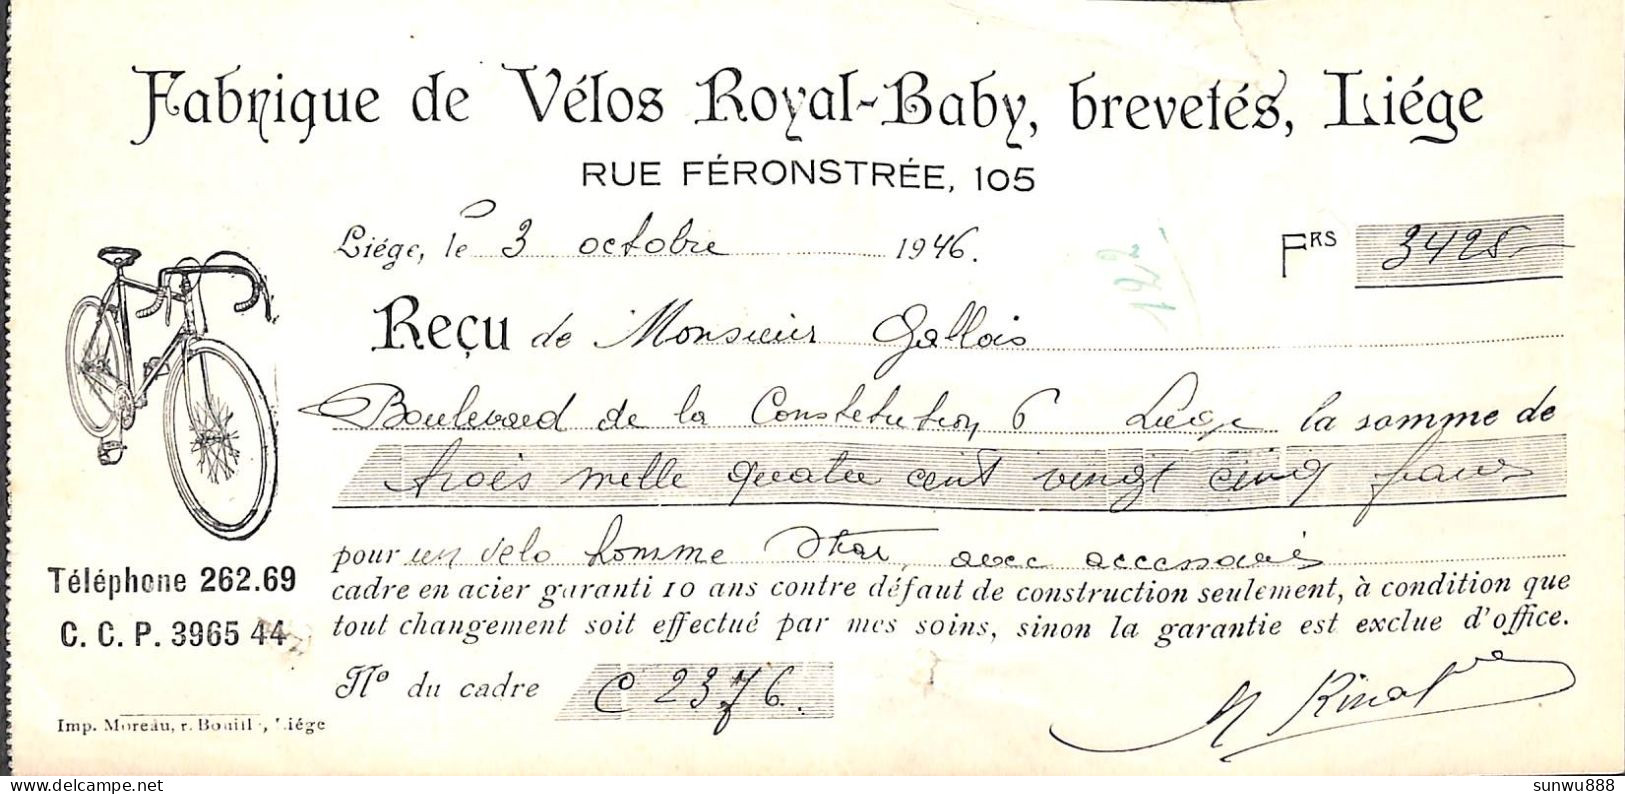 Fabrique de Vélos Royal-Baby, brevetés, Liége
RUE FÉRONSTRÉE, 105
Liége, le 3 octobre 1946.
FRS 3425-
122
Reçu de Monsieur Gallois
Boulevard de la Constitution 6 Liége la somme de
trois mille quatre cent vingt cinq francs
pour un velo homme Star, avec accessoires
cadre en acier garanti 10 ans contre défaut de construction seulement, à condition que
tout changement soit effectué par mes soins, sinon la garantie est exclue d'office.
Téléphone 262.69
C. C. P. 3965 44
No du cadre C 2376.
Imp. Moreau, r. Liége
sunwu888